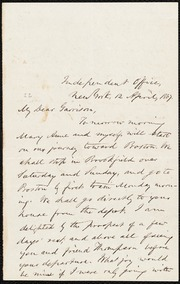 Independent Office,
New York 12 April, 1867
My Dear Garrison,
To-morrow morning
Mary Anne and myself will start
on our journey toward Boston. We
shall stop in Brookfield over
Saturday and Sunday, and go to
Boston by first train Monday morn-
ing. We shall go directly to your
house from the depot. I am
delighted by the prospect of a few
days' rest, and above all, seeing
you and friend Thompson before
your departure. What joy would
be mine if I were only going with